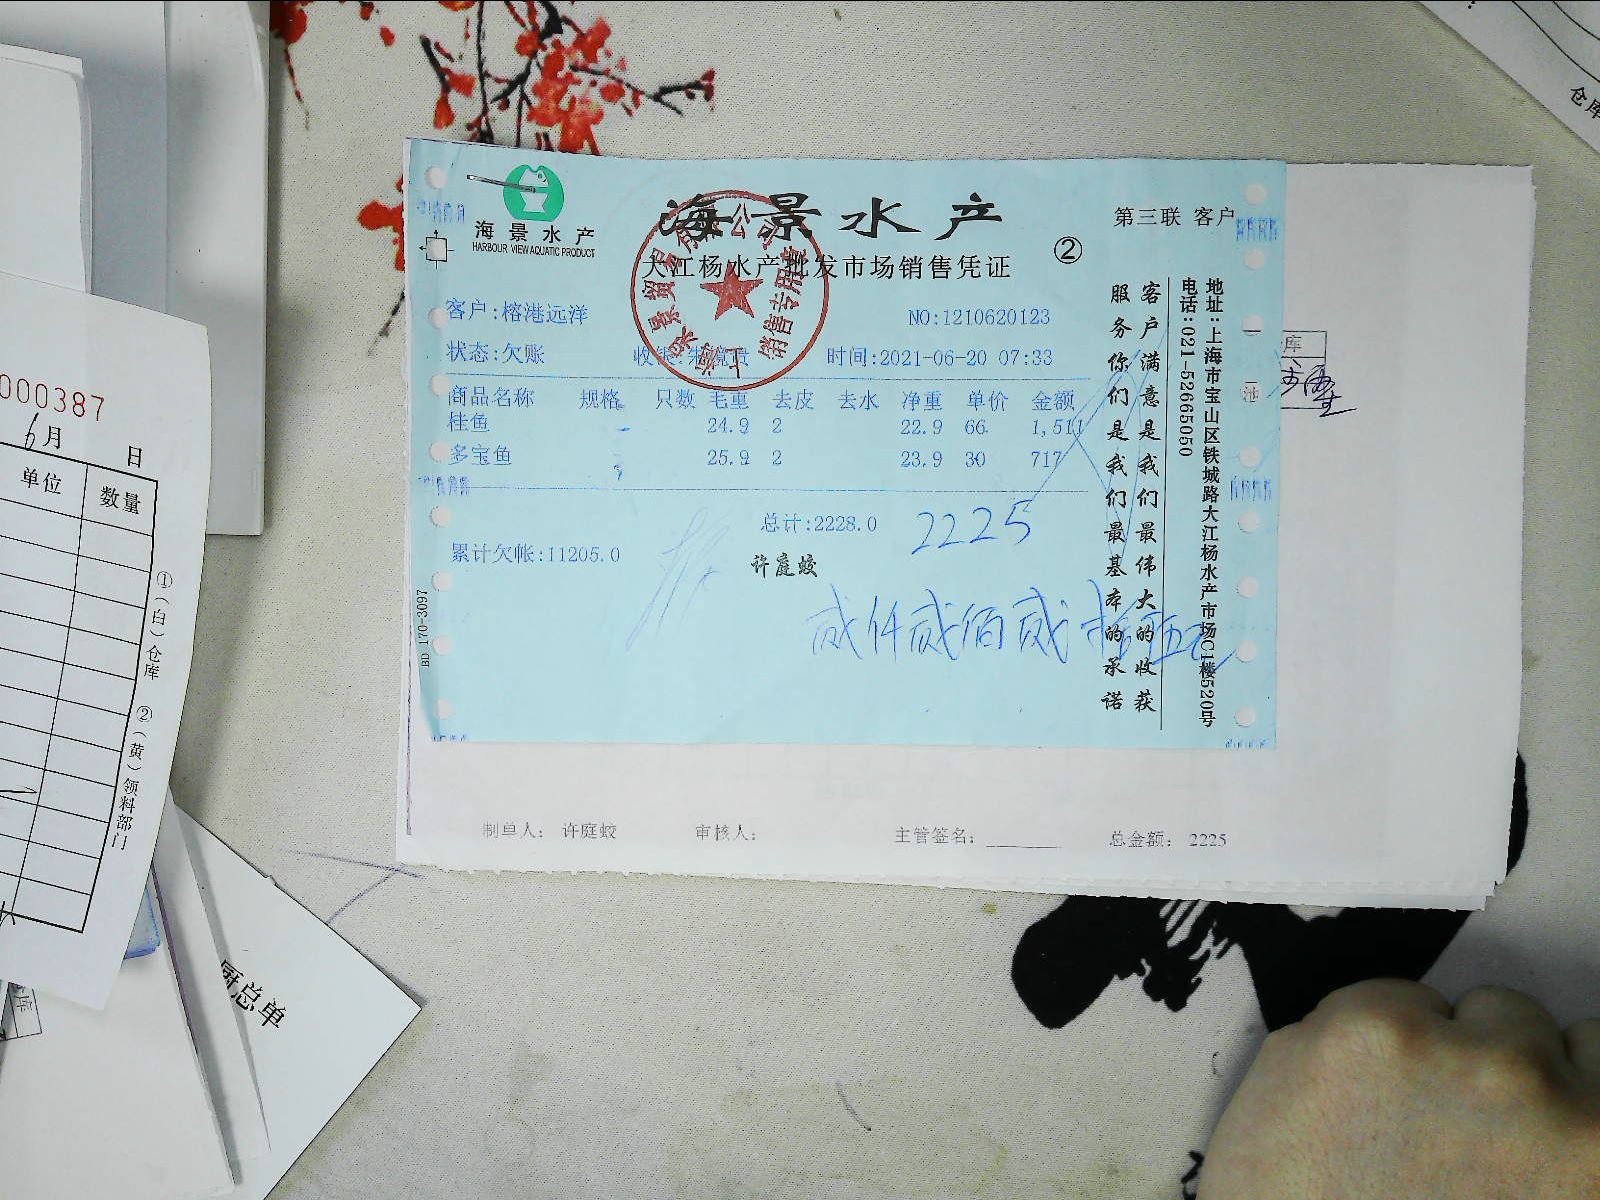 海景水产
HARBOUR VIEW AQUATIC PRODUCT
海景水产
大江杨水产批发市场销售凭证
②
第三联 客户
客户:榕港远洋
NO:1210620123
状态:欠账
时间:2021-06-20 07:33
商品名称 规格 只数 毛重 去皮 去水 净重 单价 金额
桂鱼 24.9 2 22.9 66 1,511
多宝鱼 25.9 2 23.9 30 717
总计:2228.0
2225
累计欠帐:11205.0
许庭蛟
贰仟贰佰贰拾伍元
客户满意是我们最伟大的收获
服务你们是我们最基本的承诺
地址:上海市宝山区铁城路大江杨水产市场C1楼520号
电话:021-52665050
BD 170-3097
销售专用章
制单人: 许庭蛟 审核人: 主管签名: 总金额: 2225
000387
6月 日
单位 数量
①(白)仓库 ②(黄)领料部门
厨总单
仓库
库